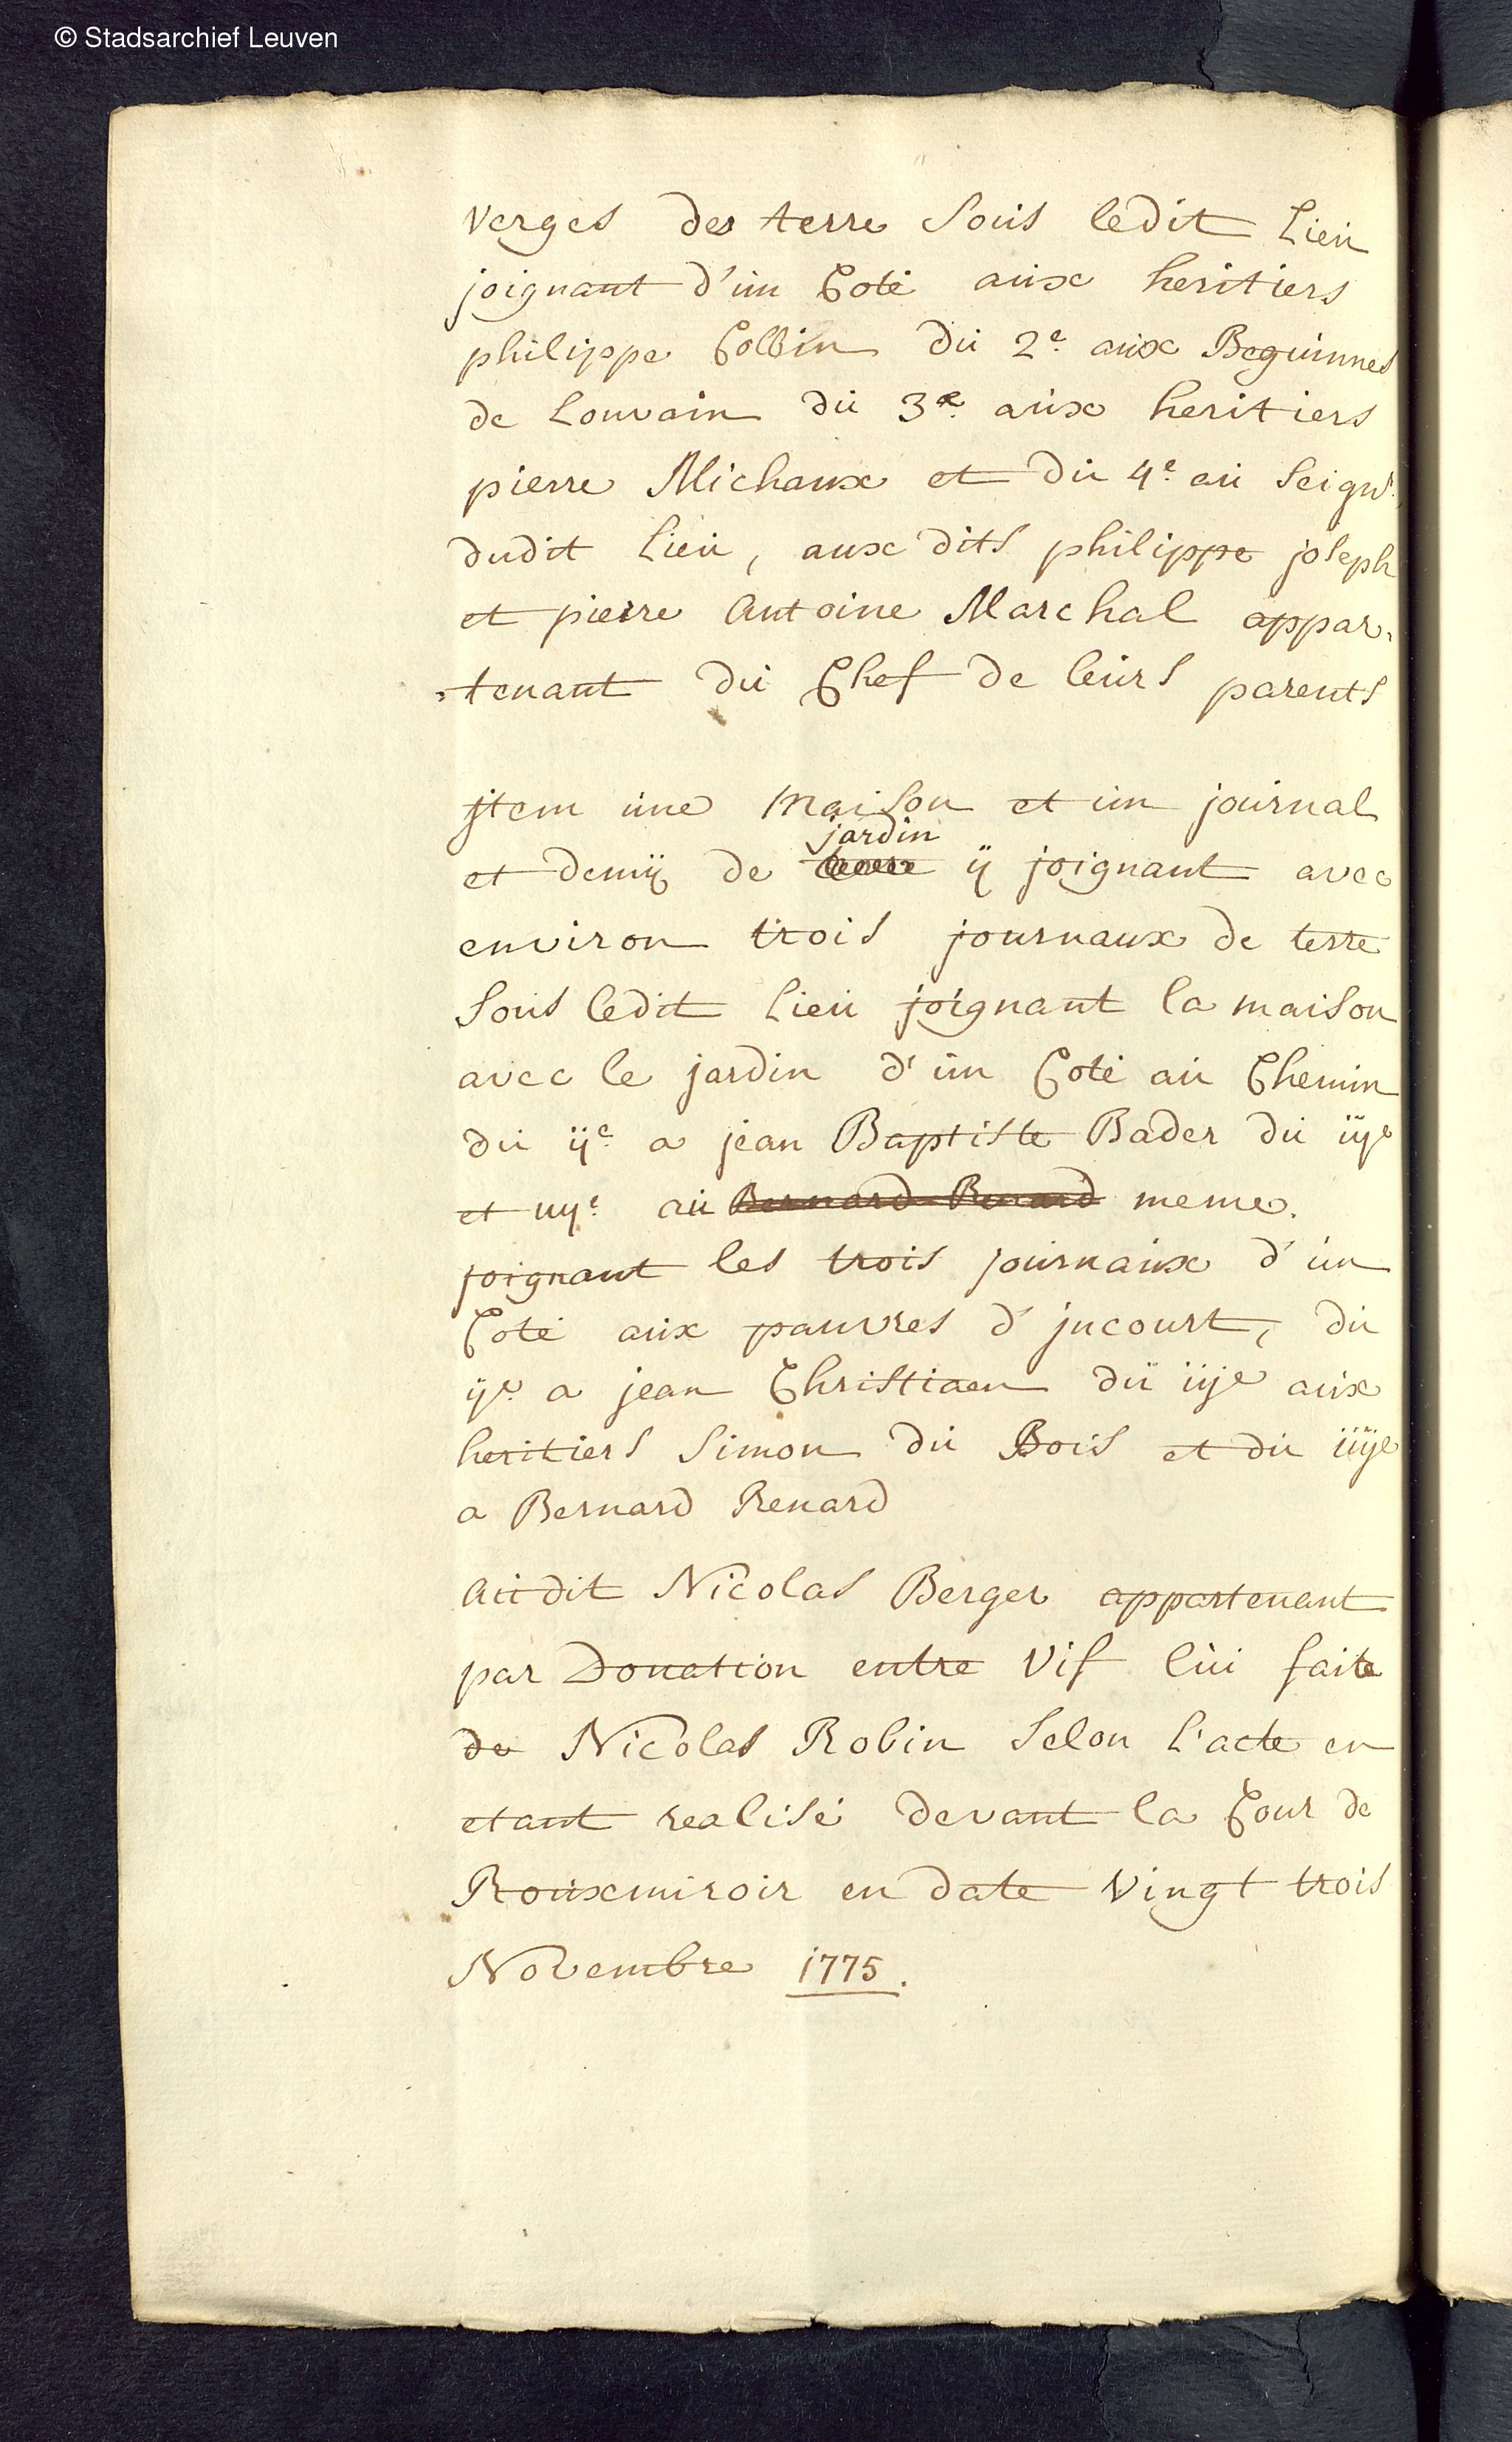 © Stadsarchief Leuven
verges des terre sous ledit lieu
joignant d'un Coté aux heritiers
philippe Collin du 2e aux Beguinnes
de Louvain du 3e aux heritiers
pierre Michaux et du 4e au Seignr
dudit lieu, aux dits philippe joseph
et pierre Antoine Marchal appar=
=tenant du Chef de leurs parents
jtem une maison et un journal
jardin
et demij de ij joignant avec
environ trois journaux de terre
sous ledit lieu joignant la maison
avec le jardin d'un Coté au Chemin
du ije a jean Baptiste Bader du iije
et iiije au Bernard Renard meme.
joignant les trois journaux d'un
Coté aux pauvres d'jncourt, du
ije a jean Christiaen du iije aux
heritiers Simon du Bois et du iiije
a Bernard Renard
Au dit Nicolas Berger appartenant
par Donation entre Vif lui faite
de Nicolas Robin Selon l'acte en
etant realisé devant la Cour de
Rouxmiroir en date Vingt trois
Novembre 1775.